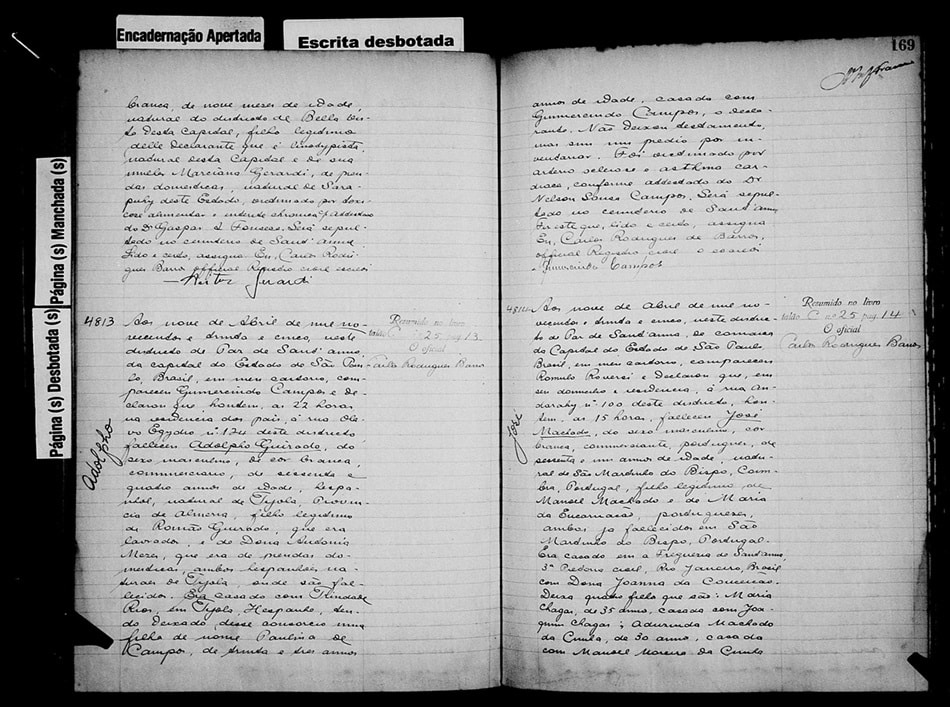 Encadernação Apertada
Escrita desbotada
Página (s) Manchada (s)
Página (s) Desbotada (s)
branca, de nove mezes de idade,
natural do districto de Bella Vis-
ta desta Capital, filho legitimo
delle declarante que é linotypista,
natural desta Capital e de sua
mulher Marciana Gerardi, de pren-
das domesticas, natural de
deste Estado, victimado por toxi-
cose alimentar e chronica
do Dr Gaspar Fonseca. Será sepul-
tado no cemiterio de Sant'anna.
Lido e certo, assigna. Eu, Carlos Rodri-
gues Barros official Registro civil escrevi
Gerardi
4813
Adolpho
Aos nove de Abril de mil no-
vecentos e trinta e cinco, neste
districto de Par de Sant'anna,
da capital do Estado de São Pau-
lo, Brasil, em meu cartorio, com-
pareceu Gumercindo Campos e de-
clarou que, hontem, as 22 horas
na residencia dos pais, á rua Ola-
vo Egydio nº 124 deste districto
falleceu Adolpho Guirado, do
sexo masculino, de cor branca,
commerciario, de sessenta e
quatro annos de idade, hespa-
nhol, natural de Tijola Provin-
cia de Almeria, filho legitimo
de Romão Guirado, que era
lavrador, e de Dona Antonia
Meza, que era de prendas do-
mesticas, ambos hespanhóes na-
turaes de Tijola, onde são fal-
lecidos. Era casado com Trindade
Rios, em Tijola, Hespanha, ten-
do deixado desse consorcio uma
filha de nome Paulina de
Campos, de trinta e tres annos
Resumido no livro
talão C nº 25 pag 13
O oficial
Carlos Rodrigues Barros
169
annos de idade, casada com
Gumercindo Campos, o decla-
rante. Não deixou testamento,
mas sim um predio por in-
ventariar. Foi victimado por
arterio esclerose e asthma car-
diaca, conforme attestado do Dr
Nelson Souza Campos. Será sepul-
tado no cemiterio de Sant'anna
Fiz este que, lido e certo, assigna
Eu, Carlos Rodrigues de Barros,
official Registro civil o escrevi
Gumercindo Campos
4814
José
Aos nove de Abril de mil no-
vecentos e trinta e cinco, neste distric-
to de Par de Sant'anna, da comarca
da Capital do Estado de São Paulo,
Brasil, em meu cartorio, compareceu
Romulo Roversi e declarou que, em
seu domicilio e residencia, á rua An-
darahy nº 100 deste districto, hon-
tem, as 15 horas falleceu José
Machado, do sexo masculino, cor
branca, commerciante, portuguez, de
sessenta e um annos de idade, natu-
ral de São Martinho do Bispo, Coim-
bra, Portugal, filho legitimo de
Manoel Machado e de Maria
da Encarnação, portuguezes,
ambos ja fallecidos em São
Martinho do Bispo, Portugal.
Era casado em a Freguezia de Sant'anna,
3ª Pretoria civil, Rio Janeiro, Brasil
com Dona Joanna da Conceição.
Deixa quatro filhos que são: Maria
Chagas, de 35 annos, casada com Joa-
quim Chagas; Adurinda Machado
da Cunha, de 30 annos, casada
com Manoel Moreira da Cunha
Resumido no livro
talão C nº 25 pag 14
O oficial
Carlos Rodrigues Barros